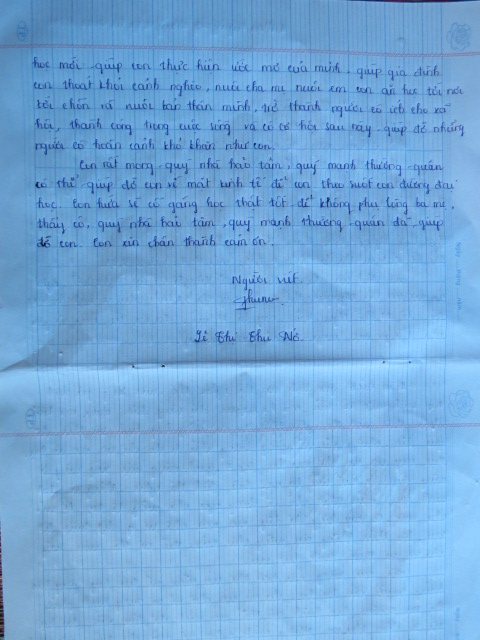 học mới giúp con thực hiện ước mơ của mình, giúp gia đình
con thoát khỏi cảnh nghèo, nuôi cha mẹ nuôi em con ăn học tới nơi
tới chốn và nuôi bản thân mình, trở thành người có ích cho xã
hội, thành công trong cuộc sống và có cơ hội sau này giúp đỡ những
người có hoàn cảnh khó khăn như con.
Con rất mong quý nhà hảo tâm, quý mạnh thường quân
có thể giúp đỡ con về mặt kinh tế để con theo suốt con đường đại
học. Con hứa sẽ cố gắng học thật tốt để không phụ lòng ba mẹ,
thầy cô, quý nhà hảo tâm, quý mạnh thường quân đã giúp
đỡ con. Con xin chân thành cảm ơn.
Người viết
Thị Thu